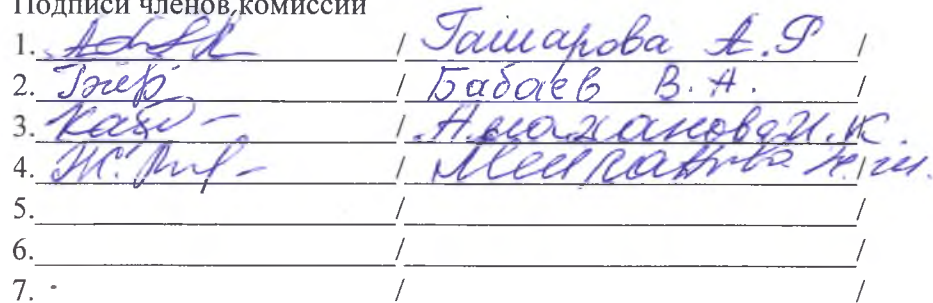 Подписи членов комиссии
1. / Гашарова А.Р /
2. / Бабаев В.А. /
3. / Амаханова И.К.
4. / Мейланова Ж.Ш.
5. / /
6. / /
7. / /